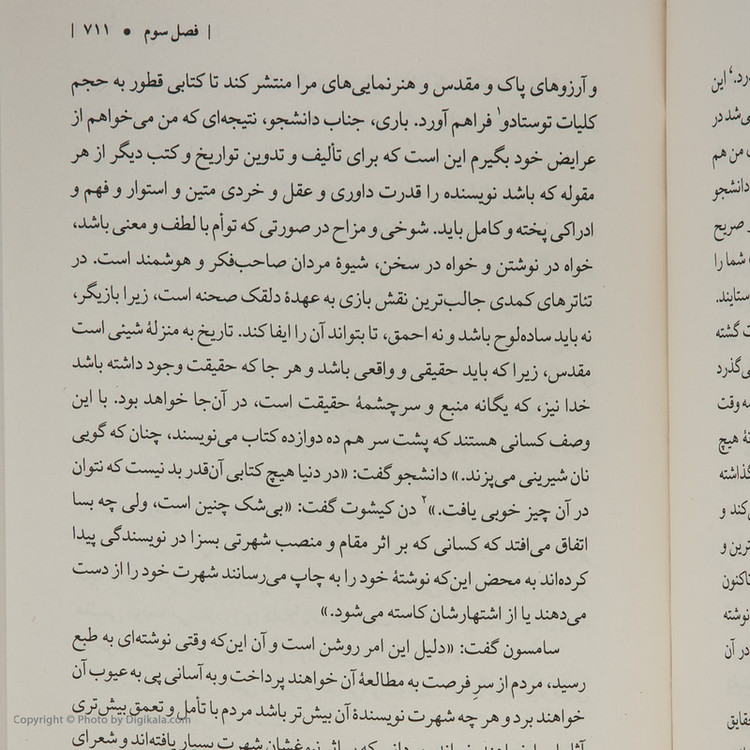 | فصل سوم ● ۷۱۱ |
و آرزوهای پاک و مقدس و هنرنمایی‌های مرا منتشر کند تا کتابی قطور به حجم
کلیات توستادو۱ فراهم آورد. باری، جناب دانشجو، نتیجه‌ای که من می‌خواهم از
عرایض خود بگیرم این است که برای تألیف و تدوین تواریخ و کتب دیگر از هر
مقوله که باشد نویسنده را قدرت داوری و عقل و خردی متین و استوار و فهم و
ادراکی پخته و کامل باید. شوخی و مزاح در صورتی که توأم با لطف و معنی باشد،
خواه در نوشتن و خواه در سخن، شیوهٔ مردان صاحب‌فکر و هوشمند است. در
تئاترهای کمدی جالب‌ترین نقش بازی به عهدهٔ دلقک صحنه است، زیرا بازیگر،
نه باید ساده‌لوح باشد و نه احمق، تا بتواند آن را ایفا کند. تاریخ به منزلهٔ شیئی است
مقدس، زیرا که باید حقیقی و واقعی باشد و هر جا که حقیقت وجود داشته باشد
خدا نیز، که یگانه منبع و سرچشمهٔ حقیقت است، در آن‌جا خواهد بود. با این
وصف کسانی هستند که پشت سر هم ده دوازده کتاب می‌نویسند، چنان که گویی
نان شیرینی می‌پزند.» دانشجو گفت: «در دنیا هیچ کتابی آن‌قدر بد نیست که نتوان
در آن چیز خوبی یافت.»۲ دن کیشوت گفت: «بی‌شک چنین است، ولی چه بسا
اتفاق می‌افتد که کسانی که بر اثر مقام و منصب شهرتی بسزا در نویسندگی پیدا
کرده‌اند به محض این‌که نوشتهٔ خود را به چاپ می‌رسانند شهرت خود را از دست
می‌دهند یا از اشتهارشان کاسته می‌شود.»
سامسون گفت: «دلیل این امر روشن است و آن این‌که وقتی نوشته‌ای به طبع
رسید، مردم از سرِ فرصت به مطالعهٔ آن خواهند پرداخت و به آسانی پی به عیوب آن
خواهند برد و هر چه شهرت نویسندهٔ آن بیش‌تر باشد مردم با تأمل و تعمق بیش‌تری
شهرت بسیار یافته‌اند و شعرای
ورد.‘ این
ی‌شد در
من هم
دانشجو
صریح
شما را
ستایند.
ت گشته
ی‌گذرد
مه وقت
تهٔ هیچ
گذاشته
کند و
ترین و
تاکنون
نوشته
در آن
حقایق
Copyright © Photo by Digikala.com